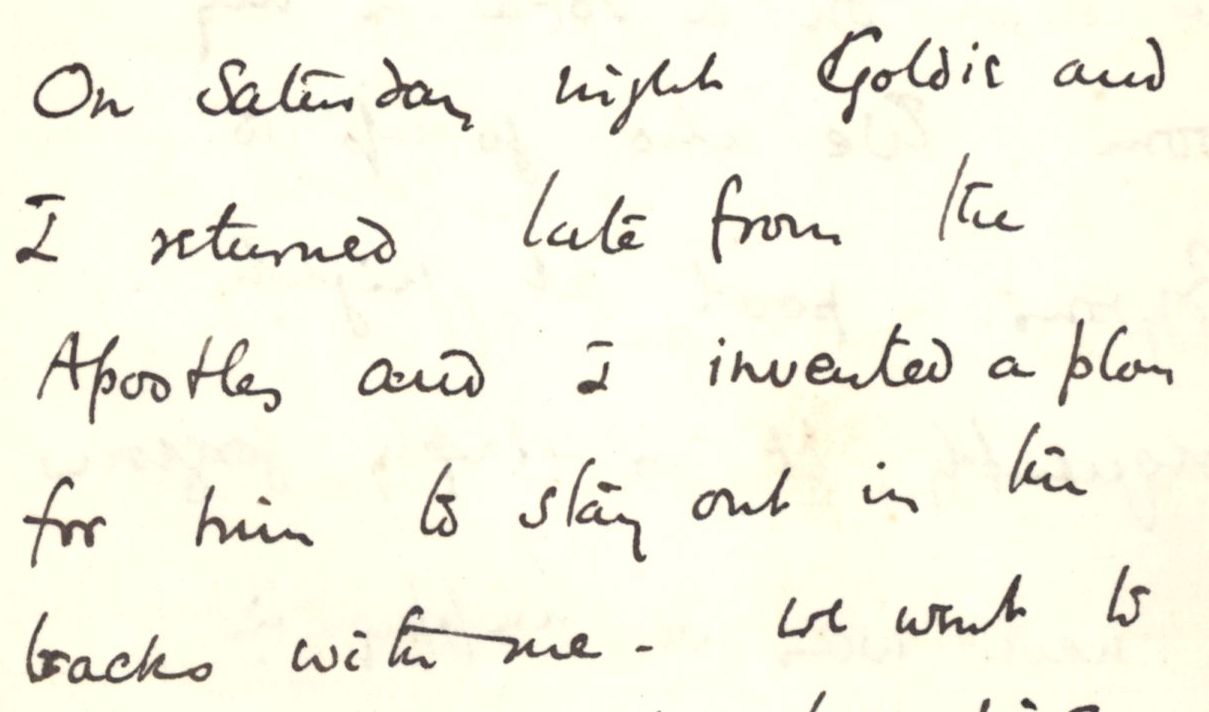 On Saturday night Goldie and
I returned late from the
Apostles and I invented a plan
for him to stay out in the
backs with me - we went to